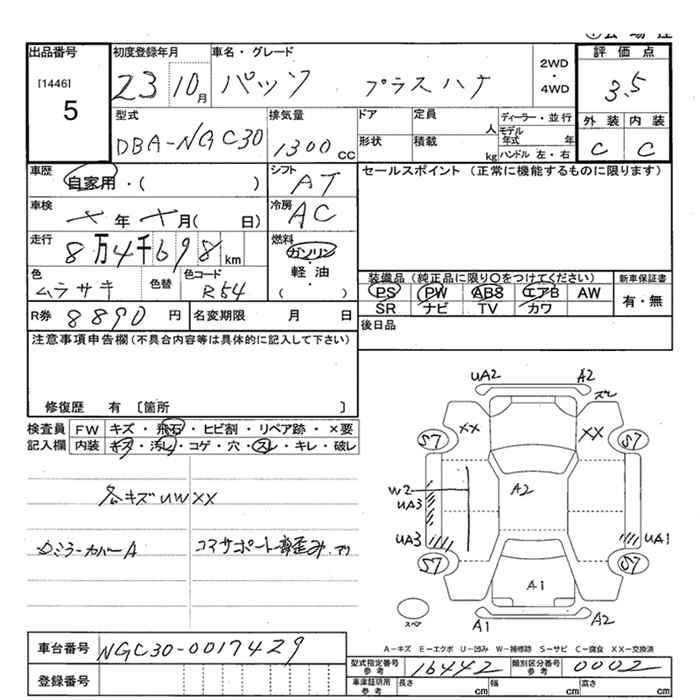 出品番号 初度登録年月 車名・グレード 評価点
[1446] 5 23 10月 パッソ プラスハナ 2WD・4WD 3.5
型式 排気量 ドア 定員 人 ディーラー・並行 外装 内装
DBA-NGC30 1300cc 形状 積載 kg モデル年式 年 ハンドル 左・右 C C
車歴 自家用・( ) シフト AT セールスポイント (正常に機能するものに限ります)
車検 メ年メ月( 日) 冷房 AC
走行 8万4千698km 燃料 ガソリン・軽油・( )
色 ムラサキ 色替 色コード R54
装備品 (純正品に限り○をつけてください) 新車保証書
PS PW ABS エアB AW 有・無
SR ナビ TV カワ
R券 8890円 名変期限 月 日 後日品
注意事項申告欄 (不具合内容等は具体的に記入して下さい)
修復歴 有 〔箇所 〕
検査員記入欄 FW キズ・飛石・ヒビ割・リペア跡・×要
内装 キズ・汚レ・コゲ・穴・スレ・キレ・破レ
各キズUWXX
カミラーカバーA コアサポート歪み アリ
UA2 A2 ズレ
XX XX
S7 S7
W2 A2
UA3
UA3 UA1
S7 S7
A1
スペア A1 A2
A-キズ E-エクボ U-凹み W-補修跡 S-サビ C-腐食 XX-交換済
車台番号 NGC30-0017429
型式指定番号 16442 類別区分番号 0002
登録番号 車庫証明用参考 長さ cm 幅 cm 高さ cm